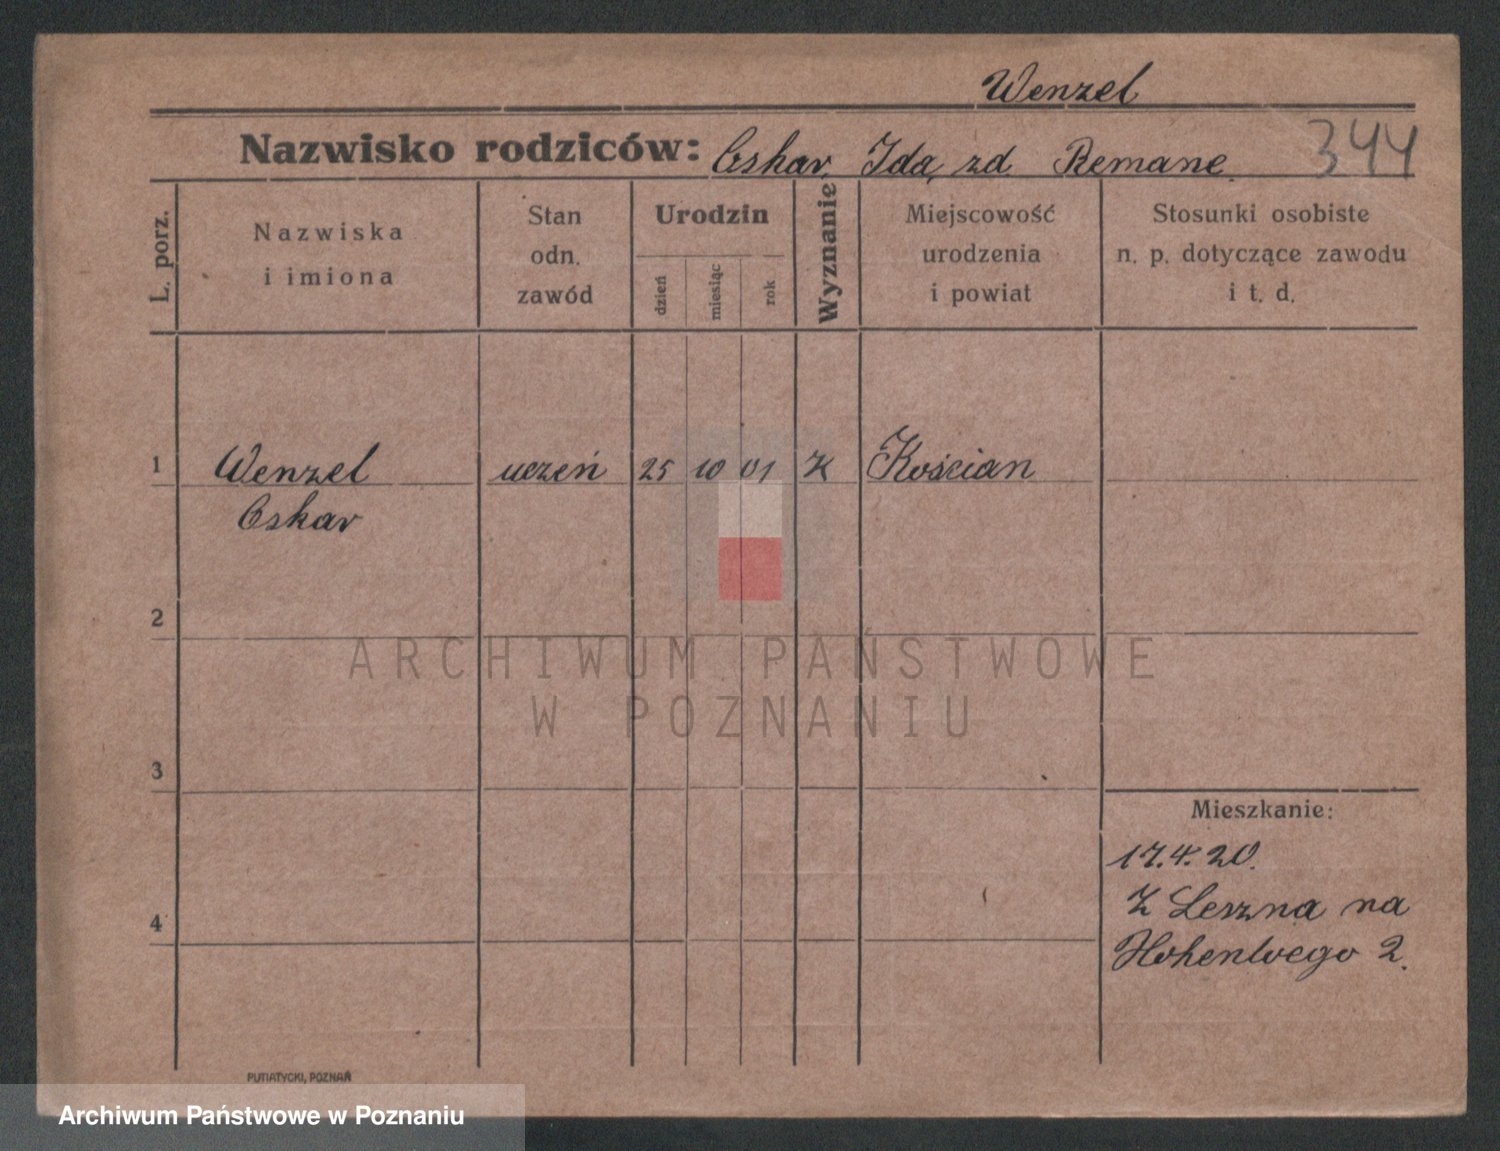 Wenzel
Nazwisko rodziców: Oskar, Ida, zd Remane. 344
L. porz.
Nazwiska
i imiona
Stan
odn.
zawód
Urodzin
dzień
miesiąc
rok
Wyznanie
Miejscowość
urodzenia
i powiat
Stosunki osobiste
n. p. dotyczące zawodu
i t. d.
1 Wenzel uczeń 25 10 01 K Kościan
Oskar
2
ARCHIWUM PAŃSTWOWE
W POZNANIU
3
Mieszkanie:
17.4.20.
Z Leszna na
4
2.
PUTIATYCKI, POZNAŃ
Archiwum Państwowe w Poznaniu